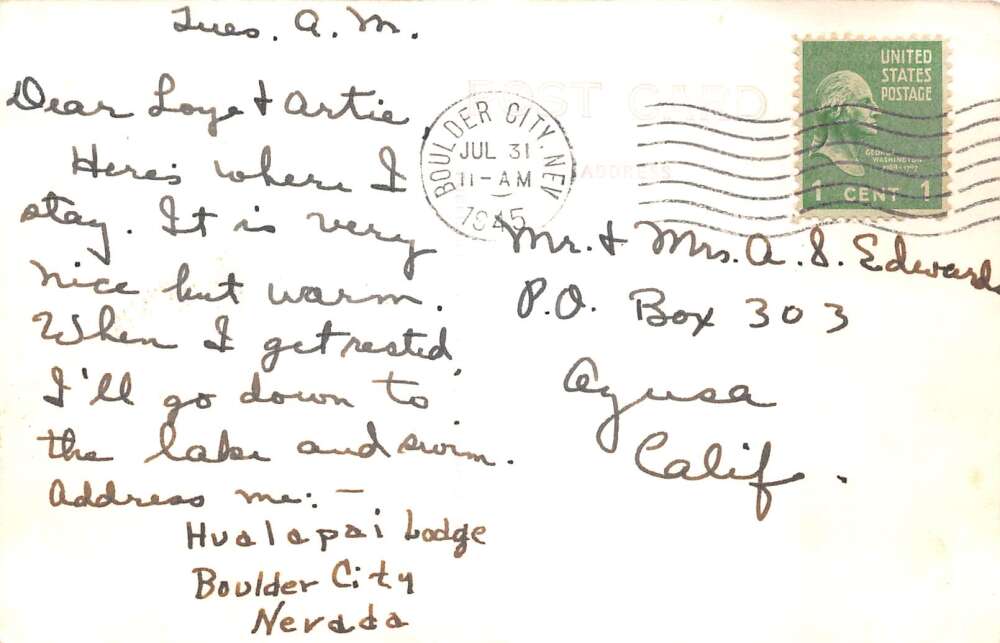 Tues. A. M.
Dear Loye + Artie,
Here's where I
stay. It is very
nice but warm.
When I get rested,
I'll go down to
the lake and swim.
Address me: —
Hualapai Lodge
Boulder City
Nevada
POST CARD
ADDRESS
BOULDER CITY, NEV
JUL 31
11-AM
1945
UNITED
STATES
POSTAGE
GEORGE
WASHINGTON
1789-1797
1 CENT 1
Mr. + Mrs. A. S. Edwards
P.O. Box 303
Azusa
Calif.